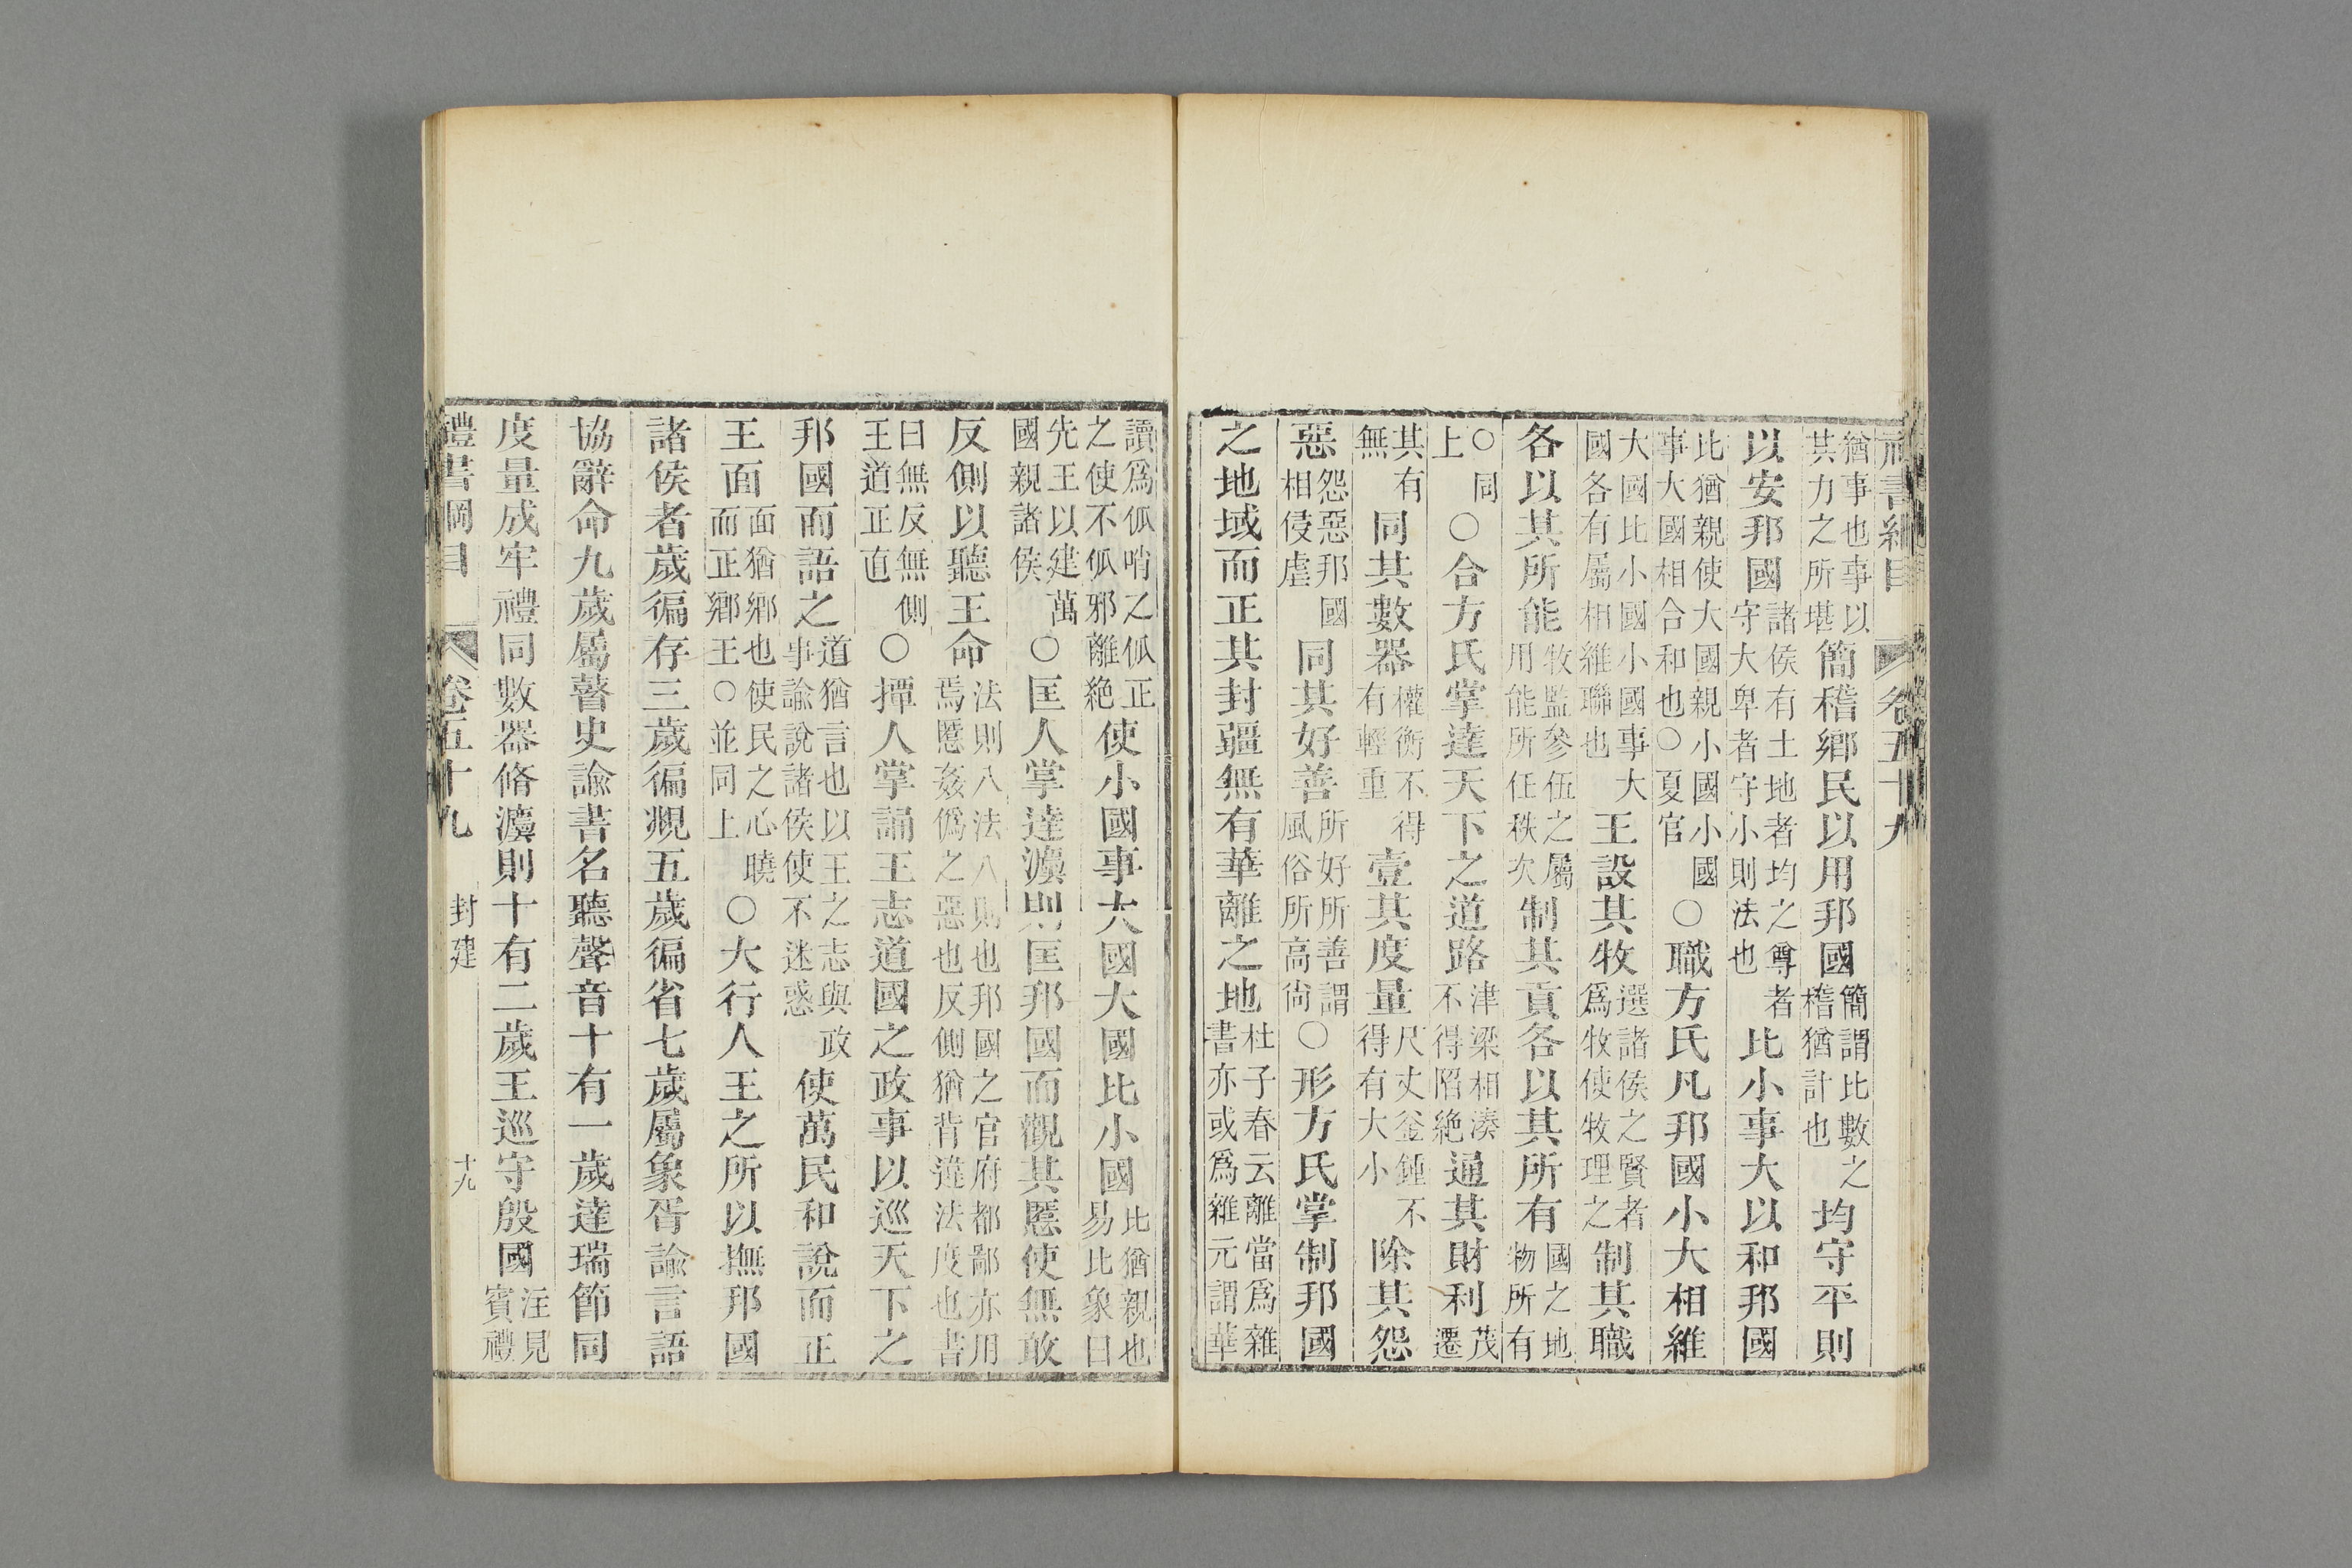 禮書綱目 卷五十九
猶事也事以其力之所堪簡稽鄉民以用邦國簡謂比數之稽猶計也均守平則
以安邦國諸侯有土地者均之尊者守大卑者守小則法也比小事大以和邦國
比猶親使大國親小國小國事大國相合和也○夏官○職方氏凡邦國小大相維
大國比小國小國事大國各有屬相維聯也王設其牧選諸侯之賢者爲牧使牧理之制其職
各以其所能牧監參伍之屬用能所任秩次制其貢各以其所有國之地物所有
○同上○合方氏掌達天下之道路津梁相湊不得陷絶通其財利茂遷
其有無同其數器權衡不得有輕重壹其度量尺丈釜鍾不得有大小除其怨
惡怨惡邦國相侵虐同其好善所好所善謂風俗所高尙○形方氏掌制邦國
之地域而正其封疆無有華離之地杜子春云離當爲雜書亦或爲雜元謂華
讀爲㧓哨之㧓正之使不㧓邪離絶使小國事大國大國比小國比猶親也易比象曰
先王以建萬國親諸侯○匡人掌達灋則匡邦國而觀其慝使無敢
反側以聽王命法則八法八則也邦國之官府都鄙亦用焉慝姦僞之惡也反側猶背違法度也書
曰無反無側王道正直○撢人掌誦王志道國之政事以巡天下之
邦國而語之道猶言也以王之志與政事諭說諸侯使不迷惑使萬民和說而正
王面面猶鄉也使民之心曉而正鄉王○並同上○大行人王之所以撫邦國
諸侯者歲徧存三歲徧覜五歲徧省七歲屬象胥諭言語
協辭命九歲屬瞽史諭書名聽聲音十有一歲達瑞節同
度量成牢禮同數器脩灋則十有二歲王巡守殷國注見賓禮
禮書綱目 卷五十九 封建 十九